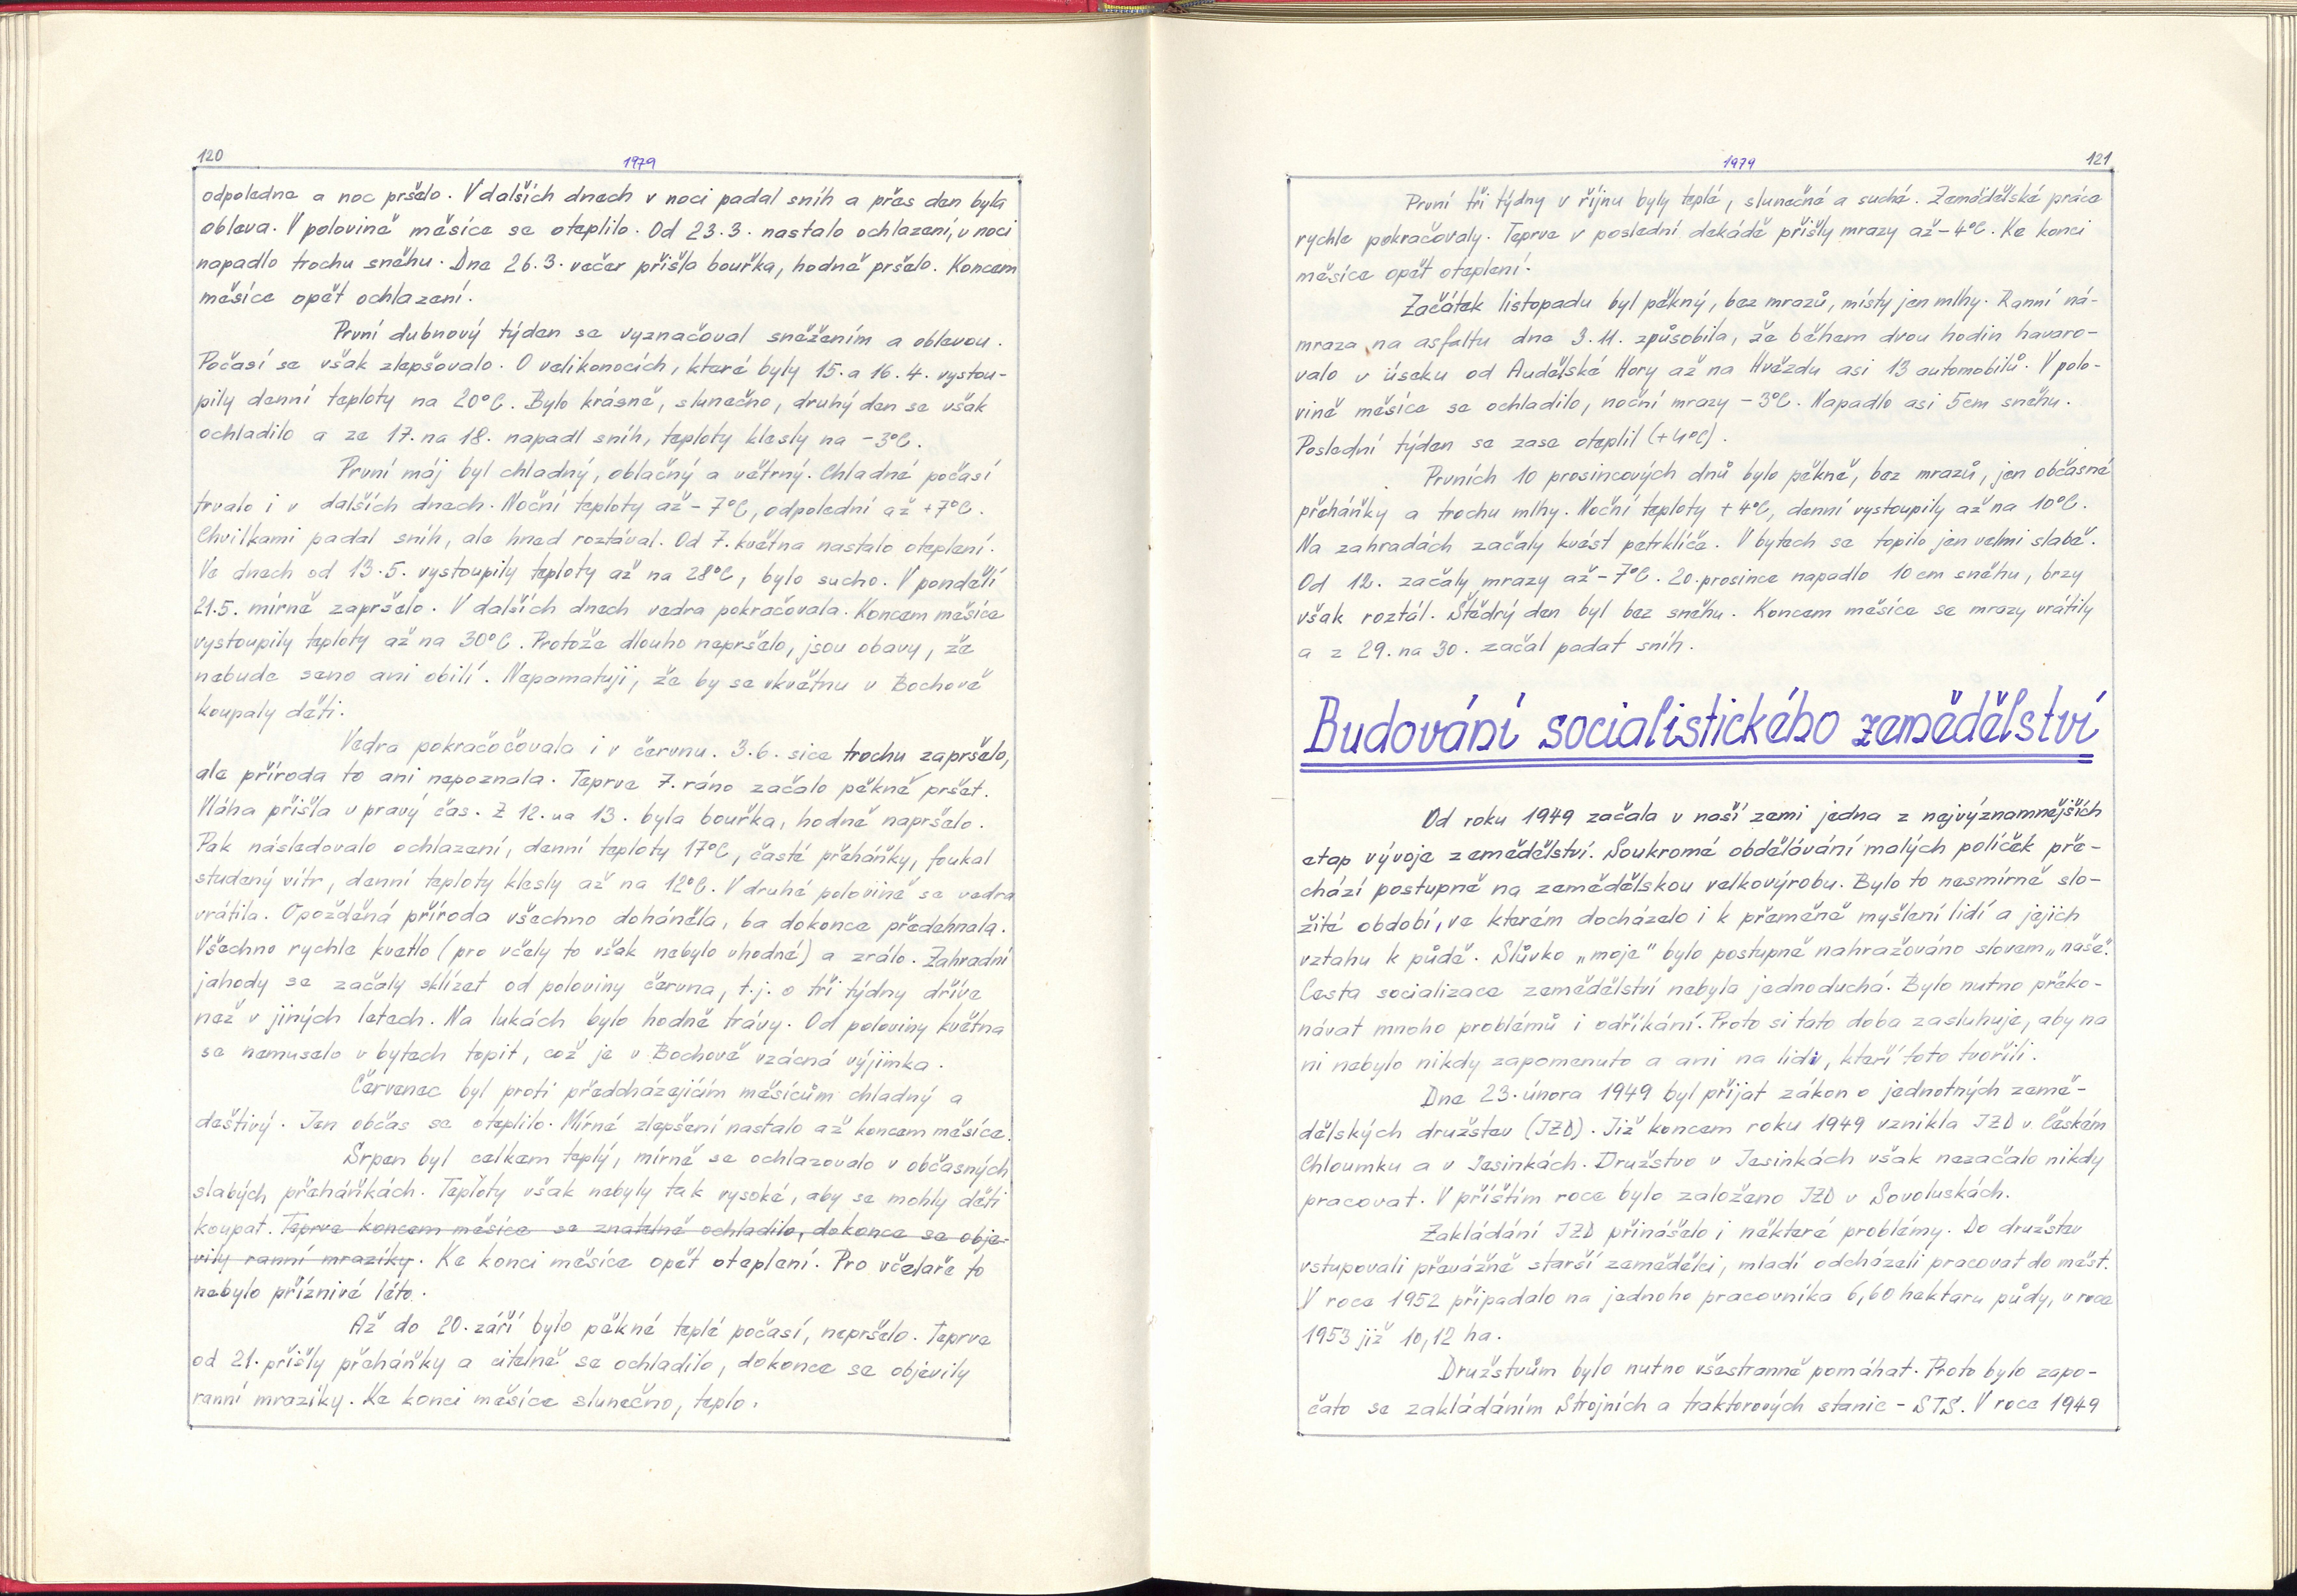 120
1979
odpoledne a noc pršelo. V dalších dnech v noci padal sníh a přes den byla
obleva. V polovině měsíce se oteplilo. Od 23.3. nastalo ochlazení, v noci
napadlo trochu sněhu. Dne 26.3. večer přišla bouřka, hodně pršelo. Koncem
měsíce opět ochlazení.
První dubnový týden se vyznačoval sněžením a oblevou.
Počasí se však zlepšovalo. O velikonocích, které byly 15. a 16. 4. vystou-
pily denní teploty na 20°C. Bylo krásně, slunečno, druhý den se však
ochladilo a ze 17. na 18. napadl sníh, teploty klesly na -3°C.
První máj byl chladný, oblačný a větrný. Chladné počasí
trvalo i v dalších dnech. Noční teploty až -7°C, odpolední až +7°C.
Chvílkami padal sníh, ale hned roztával. Od 7. května nastalo oteplení.
Ve dnech od 13.5. vystoupily teploty až na 28°C, bylo sucho. V pondělí
21.5. mírně zapršelo. V dalších dnech vedra pokračovala. Koncem měsíce
vystoupily teploty až na 30°C. Protože dlouho nepršelo, jsou obavy, že
nebude seno ani obilí. Nepamatuji, že by se v květnu v Bochově
koupaly děti.
Vedra pokračočovala i v červnu. 3.6. sice trochu zapršelo,
ale příroda to ani nepoznala. Teprve 7. ráno začalo pěkně pršet.
Vláha přišla v pravý čas. Z 12. na 13. byla bouřka, hodně napršelo.
Pak následovalo ochlazení, denní teploty 17°C, časté přeháňky, foukal
studený vítr, denní teploty klesly až na 12°C. V druhé polovině se vedra
vrátila. Opožděná příroda všechno doháněla, ba dokonce předehnala.
Všechno rychle kvetlo (pro včely to však nebylo vhodné) a zrálo. Zahradní
jahody se začaly sklízet od poloviny června, t.j. o tři týdny dříve
než v jiných letech. Na lukách bylo hodně trávy. Od poloviny května
se nemuselo v bytech topit, což je v Bochově vzácná výjimka.
Červenec byl proti předcházejícím měsícům chladný a
deštivý. Jen občas se oteplilo. Mírné zlepšení nastalo až koncem měsíce.
Srpen byl celkem teplý, mírně se ochlazovalo v občasných
slabých přeháňkách. Teploty však nebyly tak vysoké, aby se mohly děti
koupat. Teprve koncem měsíce se znatelně ochladilo, dokonce se obje-
vily ranní mrazíky. Ke konci měsíce opět oteplení. Pro včelaře to
nebylo příznivé léto.
Až do 20. září bylo pěkné teplé počasí, nepršelo. Teprve
od 21. přišly přeháňky a citelně se ochladilo, dokonce se objevily
ranní mrazíky. Ke konci měsíce slunečno, teplo.
1979
121
První tři týdny v říjnu byly teplé, slunečné a suché. Zemědělské práce
rychle pokračovaly. Teprve v poslední dekádě přišly mrazy až -4°C. Ke konci
měsíce opět oteplení.
Začátek listopadu byl pěkný, bez mrazů, místy jen mlhy. Ranní ná-
mraza na asfaltu dne 3.11. způsobila, že během dvou hodin havaro-
valo v úseku od Andělské Hory až na Hvězdu asi 13 automobilů. V polo-
vině měsíce se ochladilo, noční mrazy -3°C. Napadlo asi 5 cm sněhu.
Poslední týden se zase oteplil (+4°C).
Prvních 10 prosincových dnů bylo pěkné, bez mrazů, jen občasné
přeháňky a trochu mlhy. Noční teploty +4°C, denní vystoupily až na 10°C.
Na zahradách začaly kvést petrklíče. V bytech se topilo jen velmi slabě.
Od 12. začaly mrazy až -7°C. 20. prosince napadlo 10 cm sněhu, brzy
však roztál. Štědrý den byl bez sněhu. Koncem měsíce se mrazy vrátily
a z 29. na 30. začal padat sníh.
Budování socialistického zemědělství
Od roku 1949 začala v naší zemi jedna z nejvýznamnějších
etap vývoje zemědělství. Soukromé obdělávání malých políček pře-
chází postupně na zemědělskou velkovýrobu. Bylo to nesmírně slo-
žité období, ve kterém docházelo i k přeměně myšlení lidí a jejich
vztahu k půdě. Slůvko „moje" bylo postupně nahražováno slovem „naše".
Cesta socializace zemědělství nebyla jednoduchá. Bylo nutno překo-
návat mnoho problémů i odříkání. Proto si tato doba zasluhuje, aby na
ni nebylo nikdy zapomenuto a ani na lidi, kteří toto tvořili.
Dne 23. února 1949 byl přijat zákon o jednotných země-
dělských družstev (JZD). Již koncem roku 1949 vznikla JZD v Českém
Chloumku a v Jesínkách. Družstvo v Jesínkách však nezačalo nikdy
pracovat. V příštím roce bylo založeno JZD v Sovoluskách.
Zakládání JZD přinášelo i některé problémy. Do družstev
vstupovali převážně starší zemědělci, mladí odcházeli pracovat do měst.
V roce 1952 připadalo na jednoho pracovníka 6,60 hektaru půdy, v roce
1953 již 10,12 ha.
Družstvům bylo nutno všestranně pomáhat. Proto bylo zapo-
čato se zakládáním Strojních a traktorových stanic - STS. V roce 1949